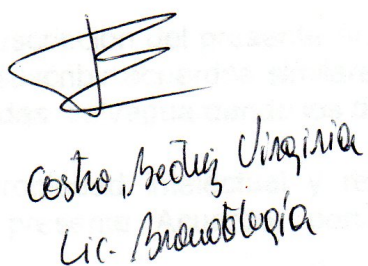 Castro, Beatriz Virginia
Lic. Bromatología